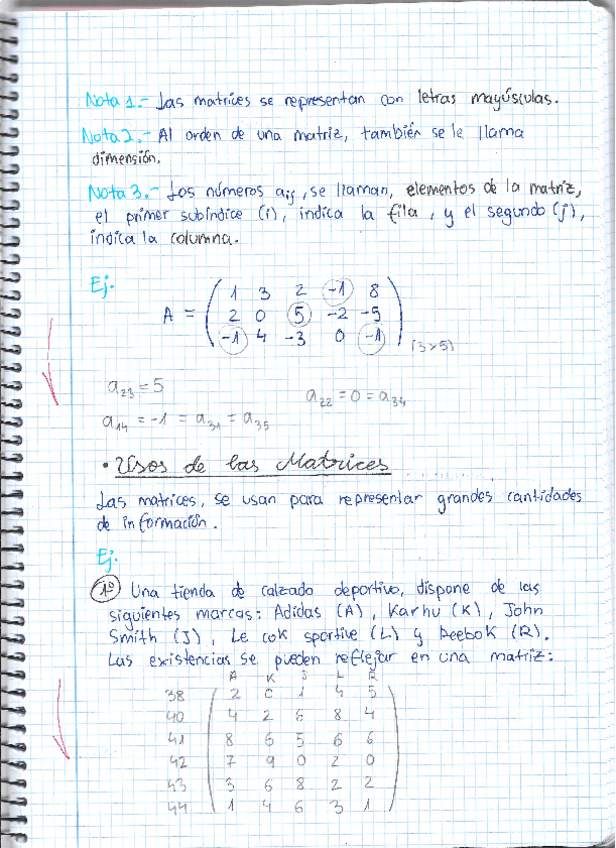 Nota 1.- Las matrices se representan con letras mayúsculas.
Nota 2.- Al orden de una matriz, también se le llama
dimensión.
Nota 3.- Los números aij, se llaman, elementos de la matriz,
el primer subíndice (i), indica la fila, y el segundo (j),
indica la columna.
Ej.
1 3 2 -1 8
A = 2 0 5 -2 -5
-1 4 -3 0 -1 (3x5)
a23 = 5 a22 = 0 = a34
a14 = -1 = a31 = a35
• Usos de las Matrices
Las matrices, se usan para representar grandes cantidades
de información.
Ej.
1º Una tienda de calzado deportivo, dispone de las
siguientes marcas: Adidas (A), Karhu (K), John
Smith (J), Le cok sportive (L) y Reebok (R).
Las existencias se pueden reflejar en una matriz:
A K J L R
38 2 0 1 4 5
40 4 2 6 8 4
41 8 6 5 6 6
42 7 9 0 2 0
43 3 6 8 2 2
44 1 4 6 3 1